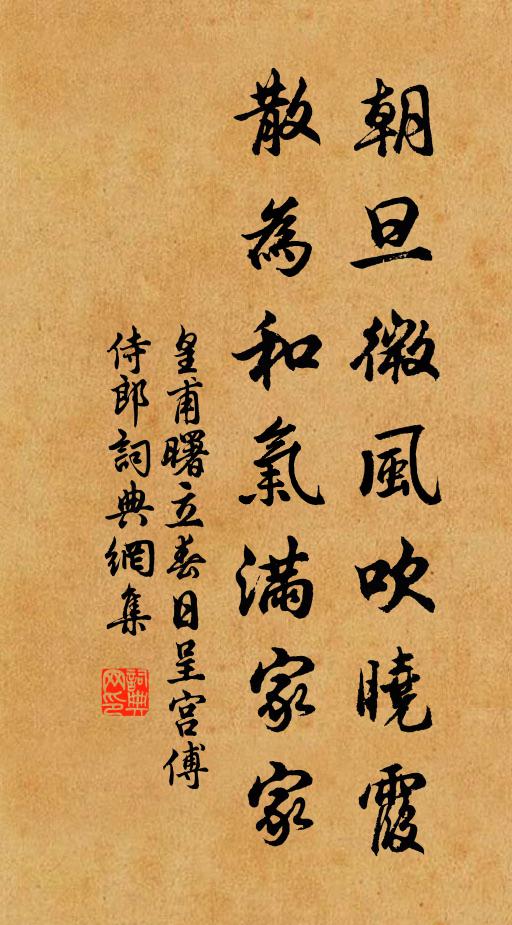 朝旦微風吹曉霞
散為和氣滿家家
皇甫曙立春日呈宮傅
侍郎詞典網集
詞典網印